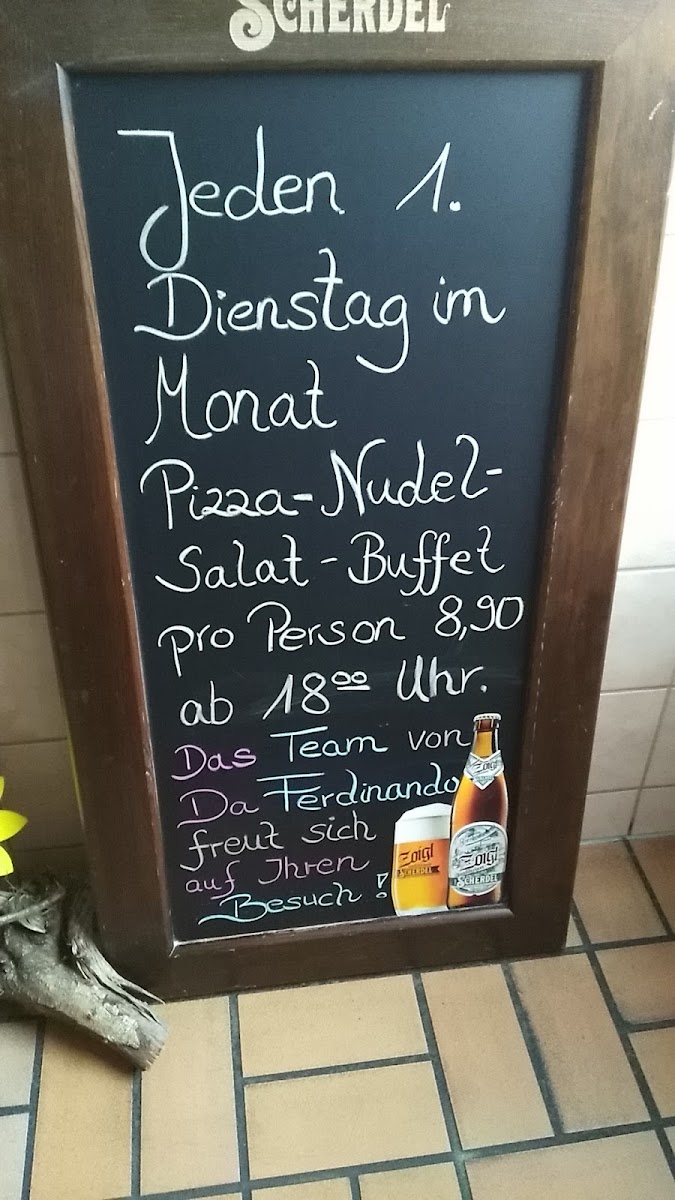 SCHERDEL
Jeden 1.
Dienstag im
Monat
Pizza-Nudel-
Salat-Buffet
pro Person 8,90
ab 18⁰⁰ Uhr.
Das Team von
Da Ferdinando
freut sich
auf Ihren
Besuch!
Zoigl
SCHERDEL
Zoigl
Zoigl
SCHERDEL